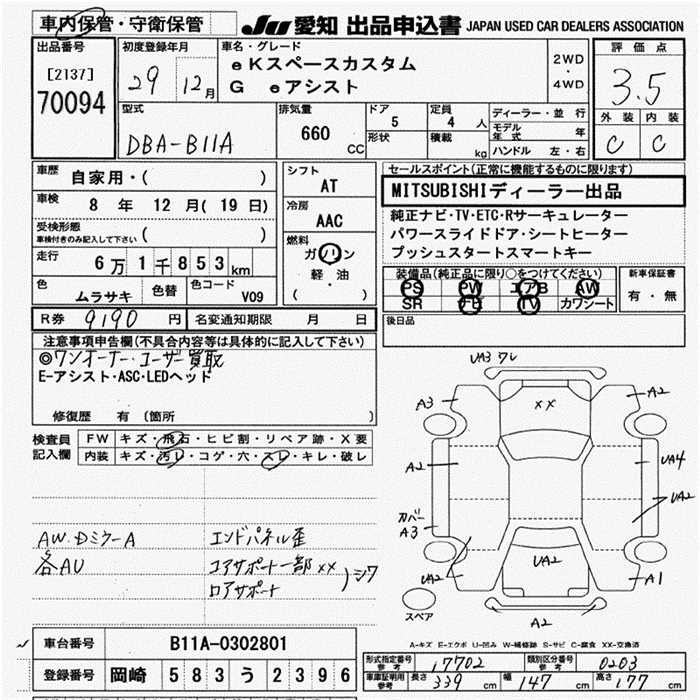 車内保管・守衛保管
JU 愛知 出品申込書 JAPAN USED CAR DEALERS ASSOCIATION
出品番号
[2137]
70094
初度登録年月
29 12月
車名・グレード
eKスペースカスタム
G eアシスト
2WD
・
4WD
評価点
3.5
外装 内装
C C
型式
DBA-B11A
排気量
660 CC
ドア
5
形状
定員
4 人
積載
kg
ディーラー・並行
モデル年式 年
ハンドル 左・右
車歴
自家用・( )
車検
8 年 12 月( 19 日)
受検形態
車検付きのみ記入して下さい ( )
走行
6万1千853km
色
ムラサキ
色替
色コード
V09
シフト
AT
冷房
AAC
燃料
ガソリン
軽・油
( )
セールスポイント(正常に機能するものに限ります)
MITSUBISHIディーラー出品
純正ナビ・TV・ETC・Rサーキュレーター
パワースライドドア・シートヒーター
プッシュスタートスマートキー
装備品(純正品に限り○をつけてください)
PS PW エアB AW
SR ナビ TV カワシート
新車保証書
有・無
R券 9190 円
名変通知期限 月 日
後日品
注意事項申告欄(不具合内容等は具体的に記入して下さい)
◎ワンオーナー・ユーザー買取
E-アシスト・ASC・LEDヘッド
修復歴 有 〔箇所 〕
検査員
記入欄
FW キズ・飛石・ヒビ割・リペア跡・X要
内装 キズ・汚レ・コゲ・穴・スレ・キレ・破レ
AW.Dミラー A
各AU
エンドパネル歪
コアサポート一部××
ロアサポート
)シワ
UA3 ワレ
A3
××
A2
A2
UA4
UA2
カバー
A3
UA2
UA2
A1
スペア
A2
A-キズ E-エクボ U-凹み W-補修跡 S-サビ C-腐食 XX-交換済
車台番号 B11A-0302801
登録番号 岡崎 583 う 2396
形式指定番号
参考
17702
類別区分番号
参考
0203
車庫証明用
参考
長さ 339 cm 幅 147 cm 高さ 177 cm